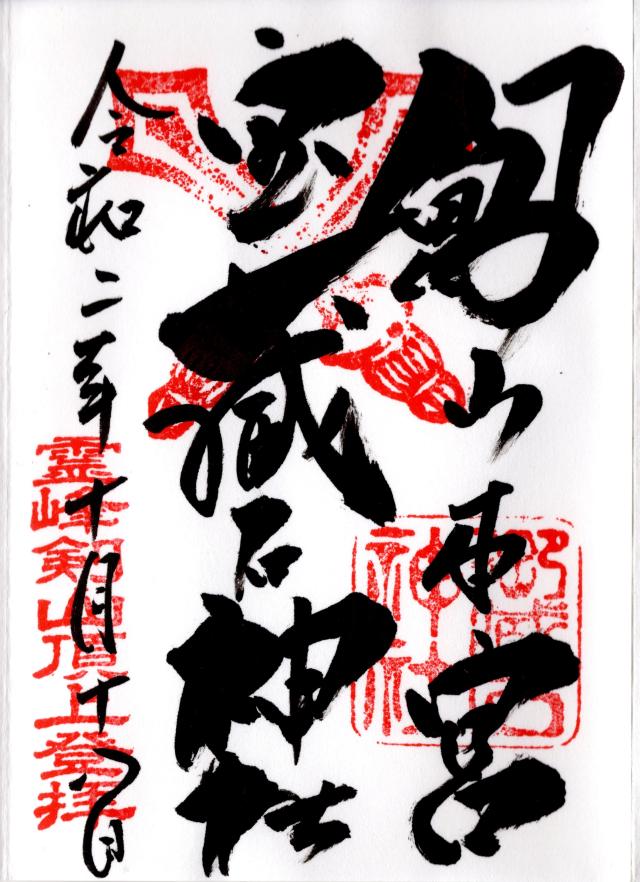 剣山本宮
宝蔵石神社
令和二年十月十八日
霊峰剣山頂上登拝
神社